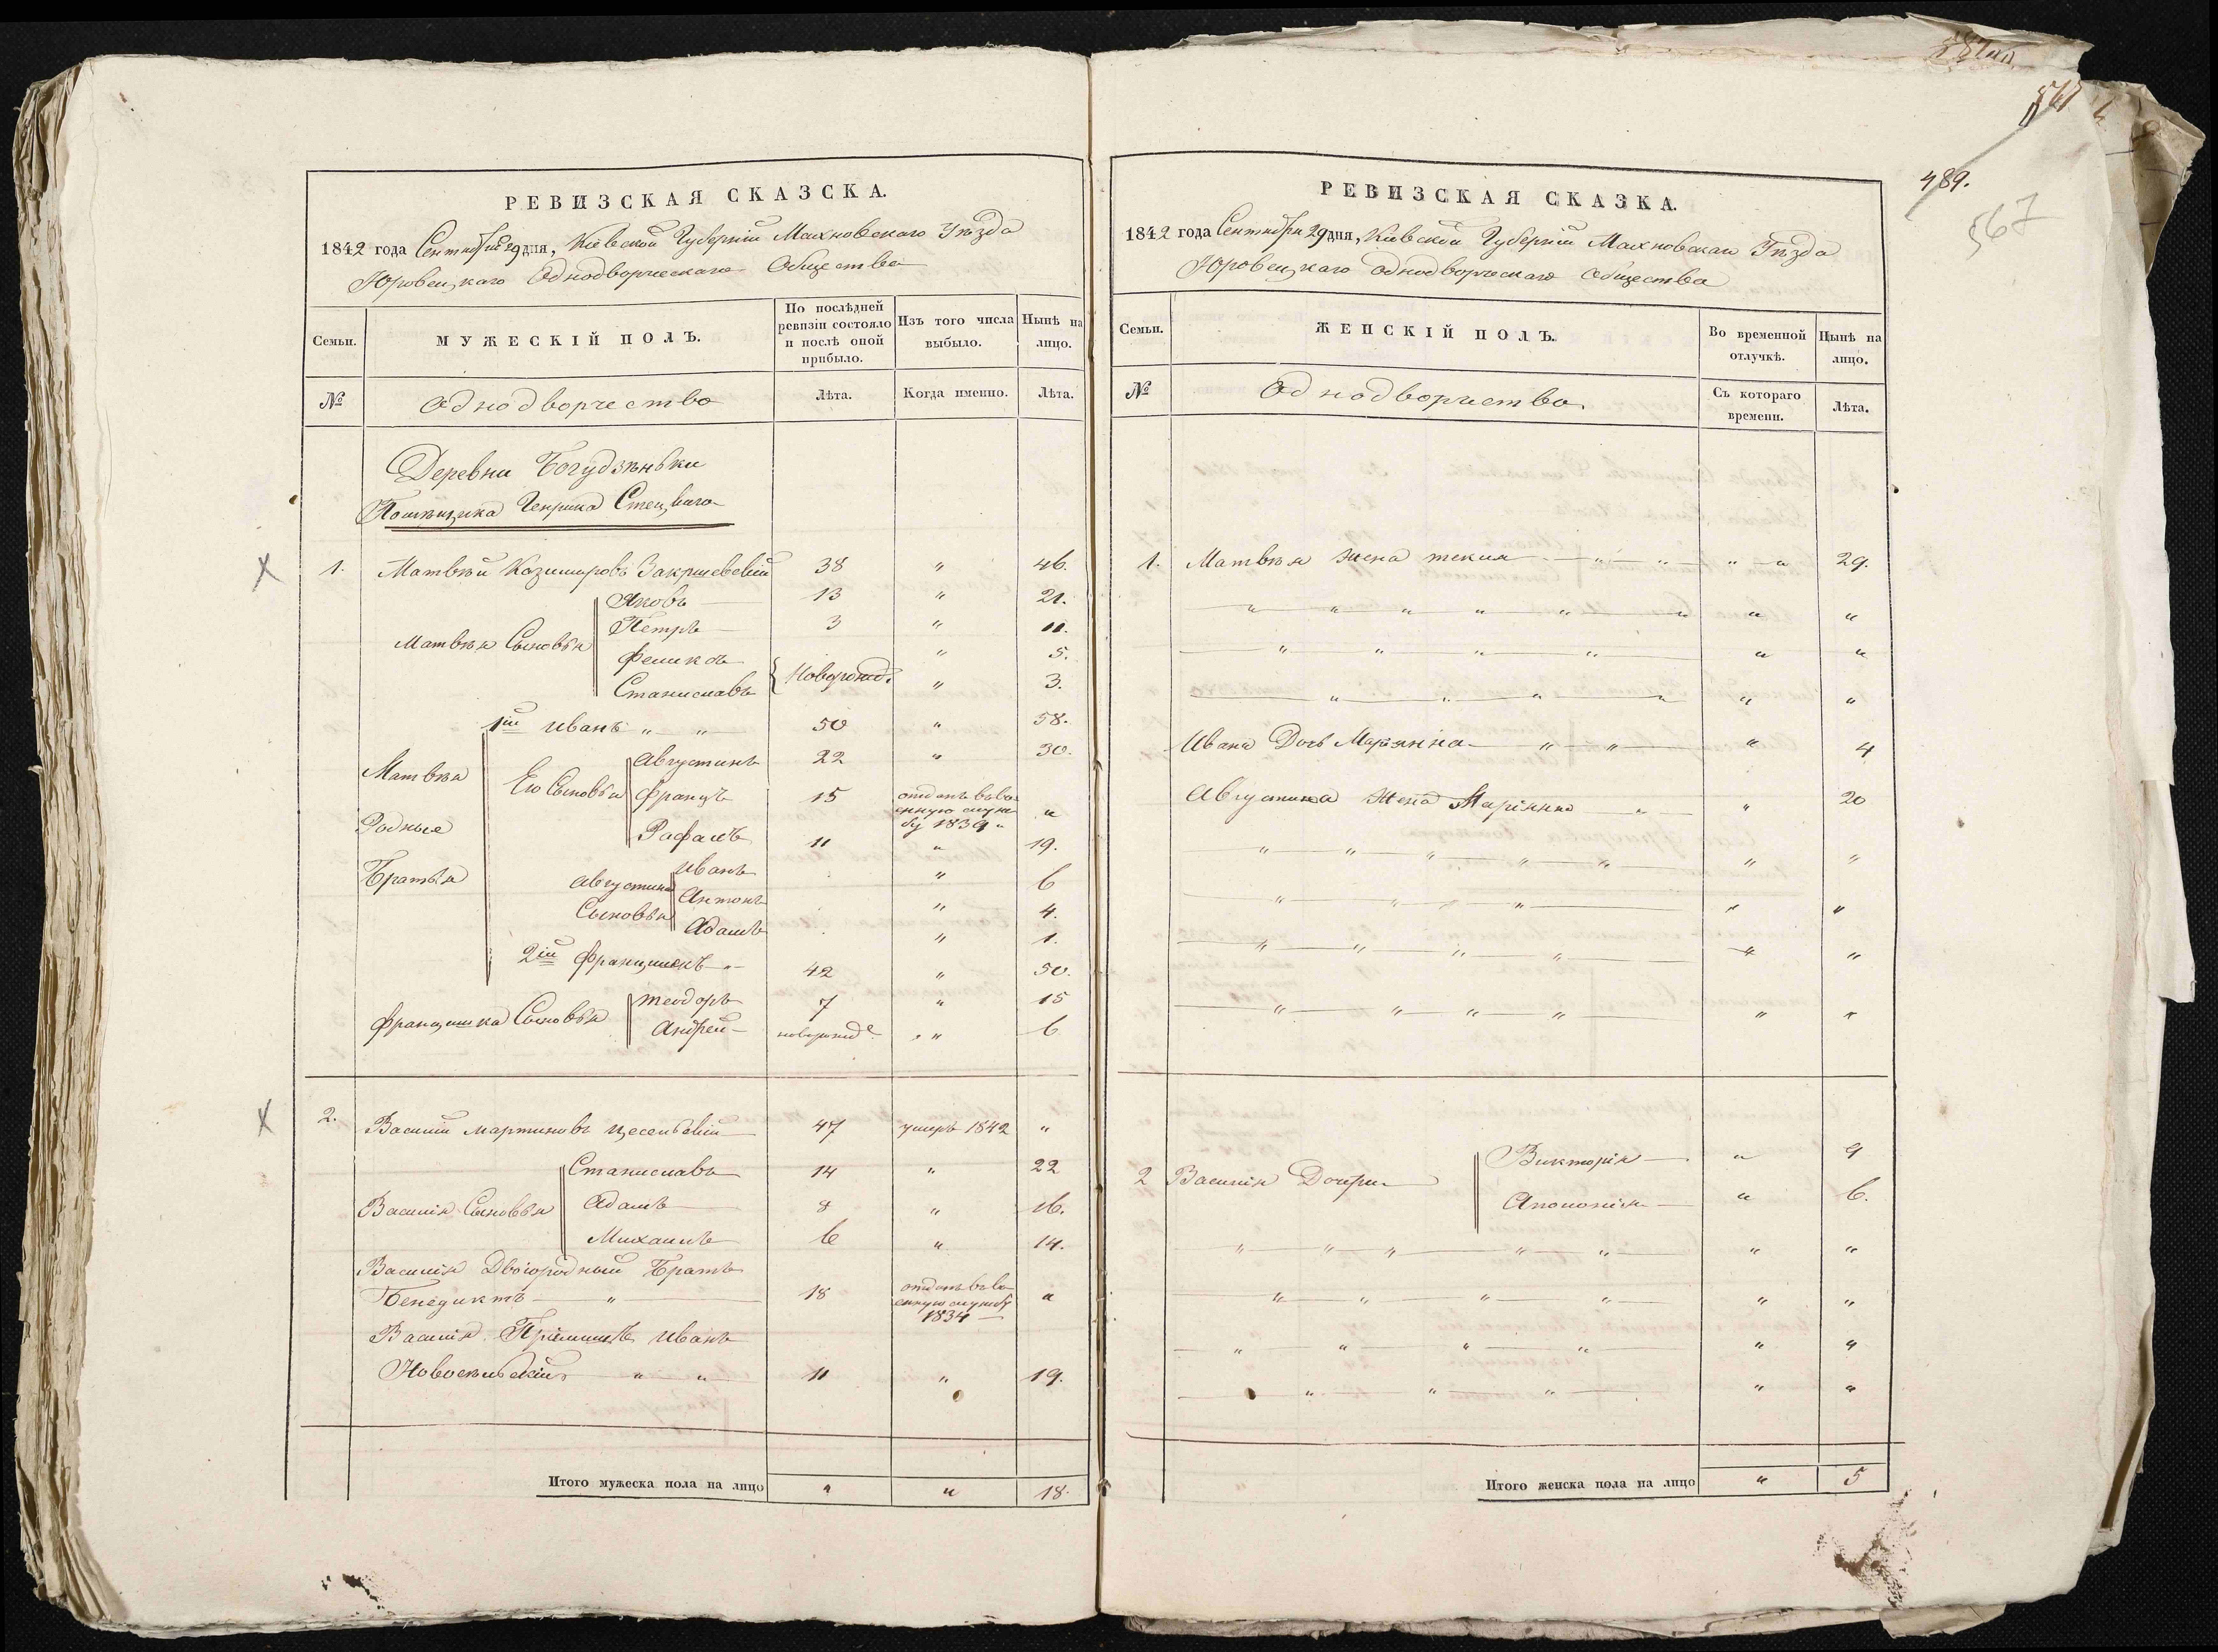 РЕВИЗСКАЯ СКАЗСКА.
1842 года Сентября 29 дня, Кіевской Губерніи Махновскаго Уѣзда
Юровецкаго Однодворческаго Общества
Семьи.
МУЖЕСКІЙ ПОЛЪ.
По послѣдней ревизіи состояло и послѣ оной прибыло.
Изъ того числа выбыло.
Нынѣ на лицо.
№
Однодворчество
Лѣта.
Когда именно.
Лѣта.
Деревни Богудзѣньки
Помѣщика Генрика Стецкаго
1. Матвѣй Казимировъ Закржевскій 38 " 46.
Матвѣя Сыновья
Яковъ 13 " 21.
Петръ 3 " 11.
Феликсъ " 5.
Новорожд.
Станиславъ " 3.
Матвѣя Родные Братья
1й Иванъ " " 50 " 58.
Его Сыновья
Августинъ 22 " 30.
Францъ 15 отданъ въ военную службу 1839 "
Рафаилъ 11 " 19.
Августина Сыновья
Иванъ " 6
Антонъ " 4.
Адамъ " 1.
2й Францишекъ " 42 " 50.
Францишка Сыновья
Теодоръ 7 " 15
Андрей новорожд. " " 6
2. Василій Мартиновъ Цесельскій 47 умеръ 1842 "
Василія Сыновья
Станиславъ 14 " 22
Адамъ 8 " 16.
Михаилъ 6 " 14.
Василія Двоюродный Братъ
Бенедиктъ " 18 отданъ въ военную службу 1834 "
Василія Пріймышъ Иванъ
Новосѣльскій " " 11 " 19.
Итого мужеска пола на лицо " " 18.
РЕВИЗСКАЯ СКАЗКА.
1842 года Сентября 29 дня, Кіевской Губерніи Махновскаго Уѣзда
Юровецкаго Однодворческаго Общества
489.
567
Семьи.
ЖЕНСКІЙ ПОЛЪ.
Во временной отлучкѣ.
Нынѣ на лицо.
№
Однодворчество.
Съ котораго времени.
Лѣта.
1. Матвѣя Жена Текля " " " " 29.
" " " " " " " "
" " " " " "
" " " " " "
Ивана Дочь Маріянна " " " 4
Августина Жена Маріянна " " 20
" " " " " " "
" " " " " "
" " " " " "
" " " " " "
2 Василія Дочери
Викторія " 9
Аполонія " 6.
" " " " " " "
" " " " " "
" " " " " "
" " " " "
Итого женска пола на лицо " 5